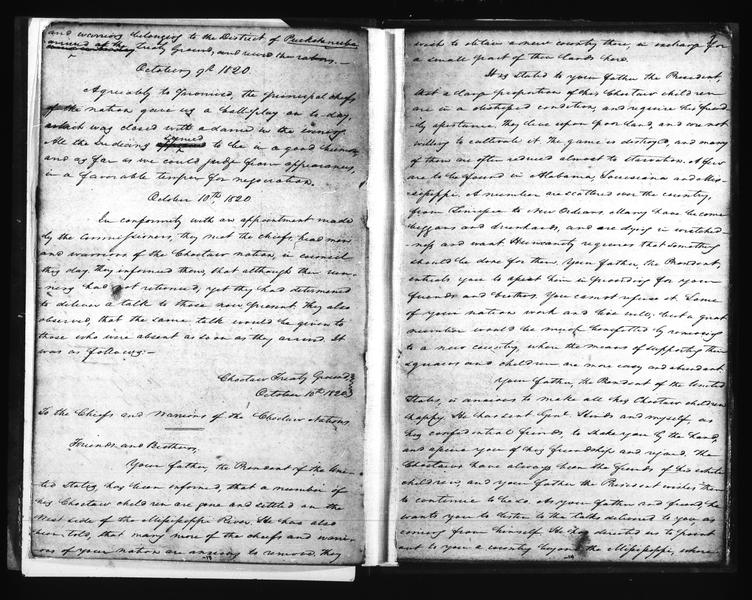 and warriors belonging to the District of Puckshenubbe
arrived at the Treaty Ground, and recieved their rations.—
October 9th 1820.
Agreeably to promise, the principal chiefs
of the nation gave us a ball play on to day,
which was closed with a dance in the evening.
All the Indians appeared seemed to be in a good humor,
and as far as we could judge from appearances,
in a favorable temper for negotiation.
October 10th 1820.
In conformity with an appointment made
by the Commissioners, they met the chiefs, head men
and warriors of the Choctaw nation, in council
this day, they informed them, that although their run-
ners had not returned, yet they had determined
to deliver a talk to those now present. They also
observed, that the same talk would be given to
those who were absent as soon as they arrived. It
was as follows:—
Choctaw Treaty Ground,
October 10th 1820
To the Chiefs and Warriors of the Choctaw Nation.
Friends and Brothers,
Your father, the President of the Uni-
ted States, has been informed, that a number of
his Choctaw children are gone and settled on the
West side of the Mississippi River. He has also
been told, that many more of the chiefs and warri-
ors of your nation are anxious to remove. They
wish to obtain a new country there, in exchange for
a small part of their lands here.
It is stated to your father the President,
that a large proportion of his Choctaw children
are in a distressed condition, and require his friend-
ly assistance. They live upon poor land, and are not
willing to cultivate it. The game is destroyed, and many
of them are often reduced almost to starvation. A few
are to be found in Alabama, Louisiana and Mis-
sissippi. A number are scattered over the country,
from Tennessee to New Orleans. Many have become
beggars and drunkards, and are dying in wretched-
ness and want. Humanity requires that something
should be done for them. Your father, the President,
entreats you to assist him in providing for your
friends and brothers. You cannot refuse it. Some
of your nation work and live well; but a great
number would be much benefitted by removing
to a new country, where the means of supporting their
squaws and children are more easy and abundant.
Your father, the President of the United
States, is anxious to make all his Choctaw children
happy. He has sent Genl. Hinds and myself, as
his confidential friends, to shake you by the hand,
and assure you of his friendship and regard. The
Choctaws have always been the friends of his white
children, and your father the President wishes them
to continue to be so. As your father and friend, he
wants you to listen to the talks delivered to you, as
coming from himself. He has directed us to point
out to you a country beyond the Mississippi, where